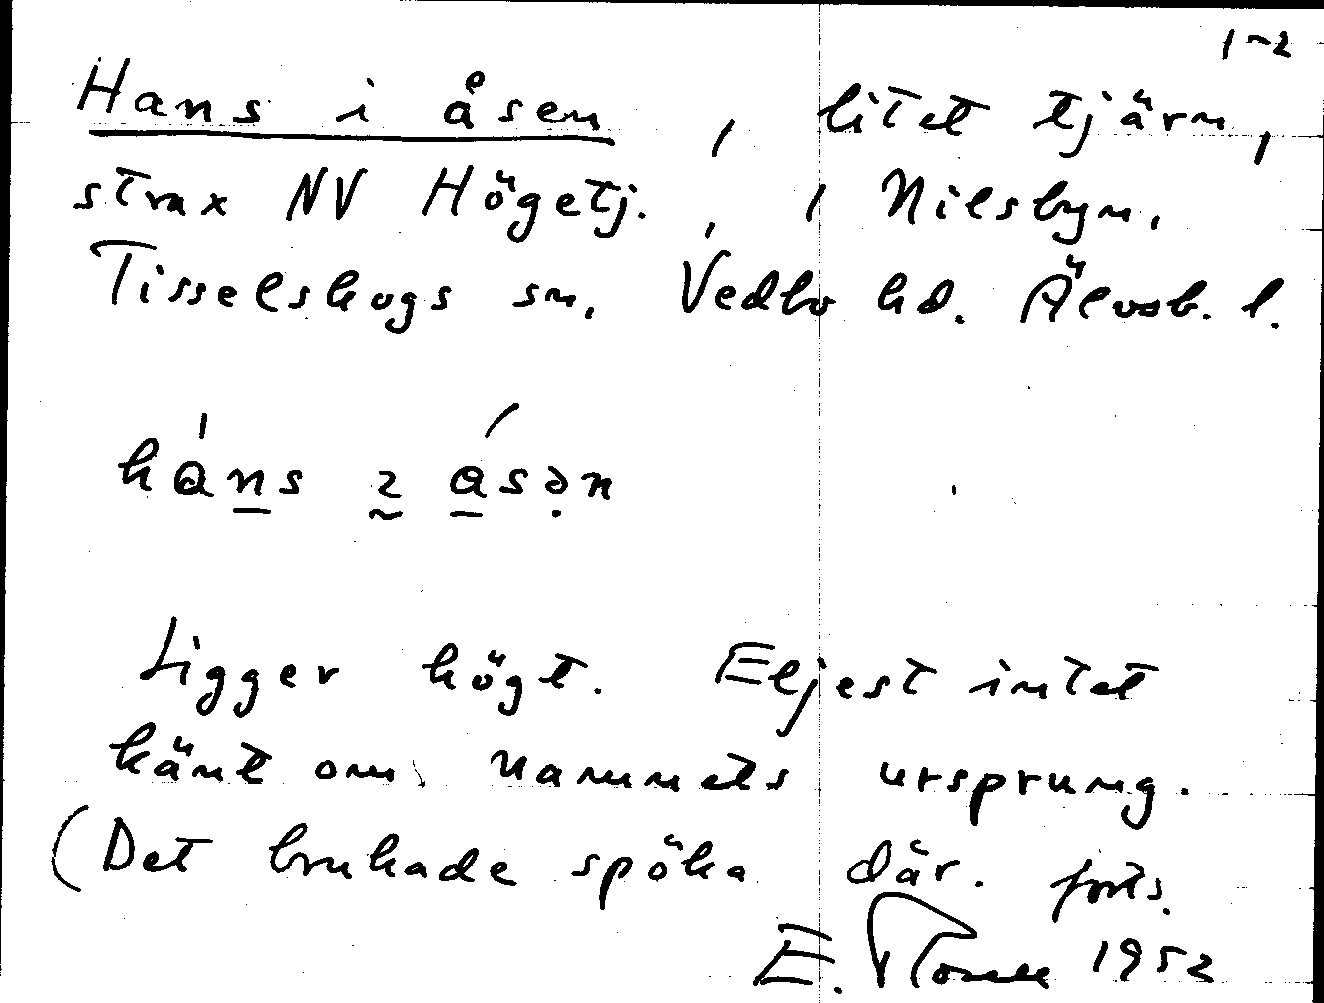 1-2
Hans i åsen, litet tjärn,
strax NV Högetj., i Nilsbyn,
Tisselskogs sn. Vedbo hd. Älvsb. l.
háns ɩ ásən
Ligger högt. Eljest intet
känt om namnets ursprung.
(Det brukade spöka där. forts.
E. 1952